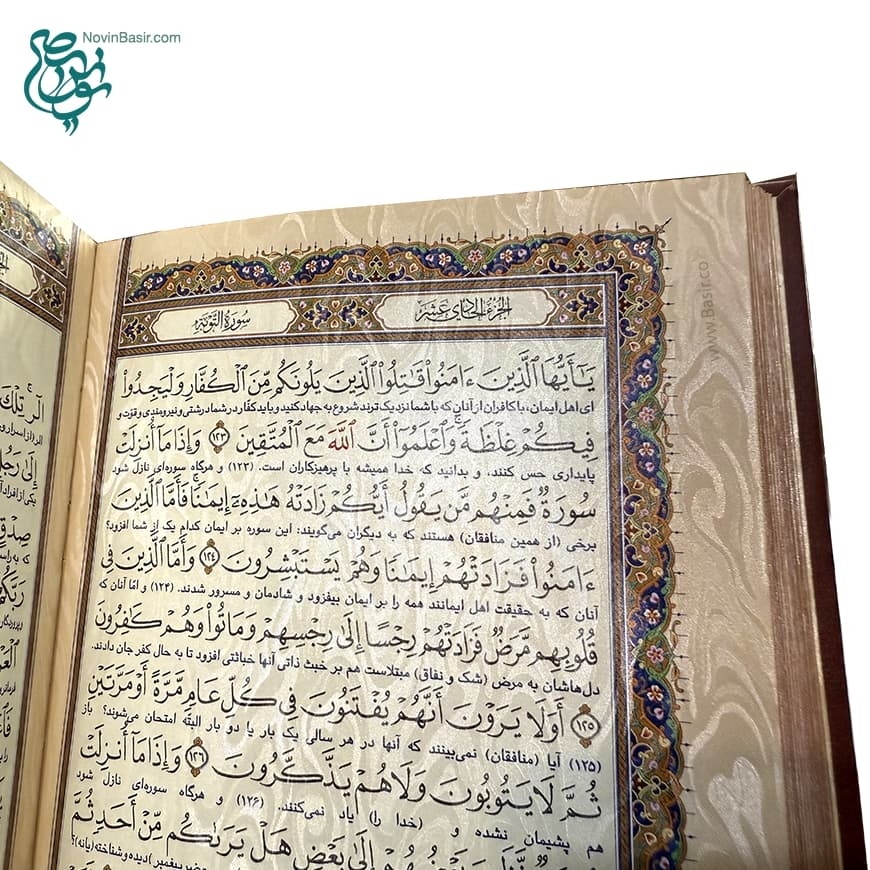 NovinBasir.com
www.Basir.co
الجزء الحادي عشر
سورة التوبة
يَـٰٓأَيُّهَا ٱلَّذِينَ ءَامَنُواْ قَـٰتِلُواْ ٱلَّذِينَ يَلُونَكُم مِّنَ ٱلۡكُفَّارِ وَلۡيَجِدُواْ
ای اهل ایمان، با کافران از آنان که با شما نزدیک‌ترند شروع به جهاد کنید و باید کفار در شما درشتی و نیرومندی و قوت و
فِيكُمۡ غِلۡظَةٗۚ وَٱعۡلَمُوٓاْ أَنَّ ٱللَّهَ مَعَ ٱلۡمُتَّقِينَ ﴿١٢٣﴾ وَإِذَا مَآ أُنزِلَتۡ
پایداری حس کنند، و بدانید که خدا همیشه با پرهیزکاران است. (۱۲۳) و هرگاه سوره‌ای نازل شود
سُورَةٞ فَمِنۡهُم مَّن يَقُولُ أَيُّكُمۡ زَادَتۡهُ هَـٰذِهِۦٓ إِيمَـٰنٗاۚ فَأَمَّا ٱلَّذِينَ
برخی (از همین منافقان) هستند که به دیگران می‌گویند: این سوره بر ایمان کدام یک از شما افزود؟
ءَامَنُواْ فَزَادَتۡهُمۡ إِيمَـٰنٗا وَهُمۡ يَسۡتَبۡشِرُونَ ﴿١٢٤﴾ وَأَمَّا ٱلَّذِينَ فِي
آنان که به حقیقت اهل ایمانند همه را بر ایمان بیفزود و شادمان و مسرور شدند. (۱۲۴) و امّا آنان که
قُلُوبِهِم مَّرَضٞ فَزَادَتۡهُمۡ رِجۡسًا إِلَىٰ رِجۡسِهِمۡ وَمَاتُواْ وَهُمۡ كَـٰفِرُونَ
دل‌هاشان به مرض (شک و نفاق) مبتلاست هم بر خبث ذاتی آنها خباثتی افزود تا به حال کفر جان دادند.
﴿١٢٥﴾ أَوَلَا يَرَوۡنَ أَنَّهُمۡ يُفۡتَنُونَ فِي كُلِّ عَامٖ مَّرَّةً أَوۡ مَرَّتَيۡنِ
(۱۲۵) آیا (منافقان) نمی‌بینند که آنها در هر سالی یک بار یا دو بار البتّه امتحان می‌شوند؟ باز
ثُمَّ لَا يَتُوبُونَ وَلَا هُمۡ يَذَّكَّرُونَ ﴿١٢٦﴾ وَإِذَا مَآ أُنزِلَتۡ
هم پشیمان نشده و (خدا را) یاد نمی‌کنند. (۱۲۶) و هرگاه سوره‌ای نازل شود
إِلَىٰ بَعۡضٍ هَلۡ يَرَىٰكُم مِّنۡ أَحَدٖ ثُمَّ
دیده و شناخته (یا نه)؟
الٓرۚ تِلۡكَ
إِلَىٰ رَجُلٖ
صِدۡقٍ
رَبَّكُمُ